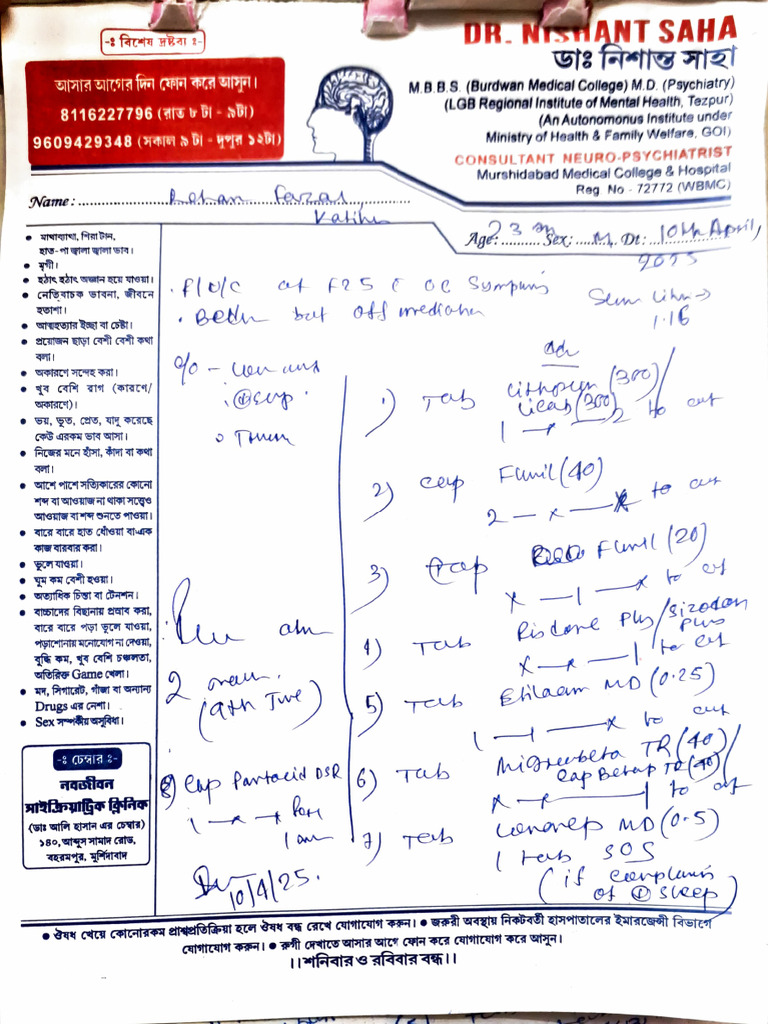 -ঃ বিশেষ দ্রষ্টব্য ঃ-
আসার আগের দিন ফোন করে আসুন।
8116227796 (রাত ৮ টা - ৯টা)
9609429348 (সকাল ৯ টা - দুপুর ১২টা)
DR. NISHANT SAHA
ডাঃ নিশান্ত সাহা
M.B.B.S. (Burdwan Medical College) M.D. (Psychiatry)
(LGB Regional Institute of Mental Health, Tezpur)
(An Autonomonus Institute under
Ministry of Health & Family Welfare, GOI)
CONSULTANT NEURO-PSYCHIATRIST
Murshidabad Medical College & Hospital
Reg No - 72772 (WBMC)
Name :
Age: 23 Sex: M Dt: 10th April,
2025
• মাথাব্যাথা, শিরা টান,
হাত-পা জ্বালা জ্বালা ভাব।
• মৃগী।
• হঠাৎ হঠাৎ অজ্ঞান হয়ে যাওয়া।
• নেতিবাচক ভাবনা, জীবনে
হতাশা।
• আত্মহত্যার ইচ্ছা বা চেষ্টা।
• প্রয়োজন ছাড়া বেশী বেশী কথা
বলা।
• অকারণে সন্দেহ করা।
• খুব বেশি রাগ (কারণে/
অকারণে)।
• ভয়, ভূত, প্রেত, যাদু করেছে
কেউ এরকম ভাব আসা।
• নিজের মনে হাঁসা, কাঁদা বা কথা
বলা।
• আশে পাশে সত্যিকারের কোনো
শব্দ বা আওয়াজ না থাকা সত্ত্বেও
আওয়াজ বা শব্দ শুনতে পাওয়া।
• বারে বারে হাত ধোঁওয়া বা এক
কাজ বারবার করা।
• ভুলে যাওয়া।
• ঘুম কম বেশী হওয়া।
• অত্যাধিক চিন্তা বা টেনশন।
• বাচ্চাদের বিছানায় প্রস্রাব করা,
বারে বারে পড়া ভুলে যাওয়া,
পড়াশোনায় মনোযোগ না দেওয়া,
বুদ্ধি কম, খুব বেশি চঞ্চলতা,
অতিরিক্ত Game খেলা।
• মদ, সিগারেট, গাঁজা বা অন্যান্য
Drugs এর নেশা।
• Sex সম্পর্কীয় অসুবিধা।
-ঃ চেম্বার ঃ-
নবজীবন
সাইক্রিয়াট্রিক ক্লিনিক
(ডাঃ আলি হাসান এর চেম্বার)
১৪০, আব্দুস সামাদ রোড,
বহরমপুর, মুর্শিদাবাদ
• F/U/C of F25 c OC Symptoms
• Better but off medication
1.16
1) Tab (300)/
(300)
1 - x - 2 to cut
2) Cap Funil (40)
2 - x - x to cut
3) Cap Funil (20)
x - 1 - x to cut
4) Tab Risdone Plus/Sizodon
Plus
x - x - 1 to cut
5) Tab Etilaam MD (0.25)
1 - 1 - x to cut
6) Tab Migrabeta TR (40)/
Cap Betap TR (40)
x - x - 1 to cut
7) Tab MD (0.5)
1 tab SOS
(if complains
of sleep)
2
(9th June)
8) Cap Pantacid DSR
1 - x - x
10/4/25.
• ঔষধ খেয়ে কোনোরকম প্বার্শ্বপ্রতিক্রিয়া হলে ঔষধ বন্ধ রেখে যোগাযোগ করুন। • জরুরী অবস্থায় নিকটবর্তী হাসপাতালের ইমারজেন্সী বিভাগে
যোগাযোগ করুন। • রুগী দেখাতে আসার আগে ফোন করে যোগাযোগ করে আসুন।
।।শনিবার ও রবিবার বন্ধ।।